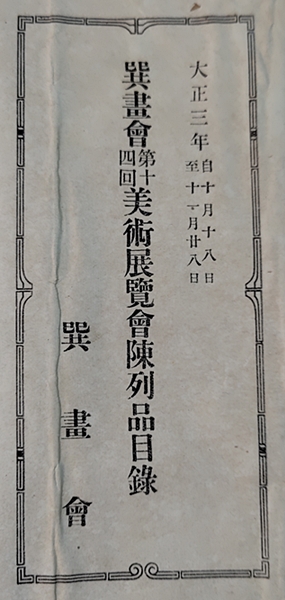 大正三年自十月十八日至十一月廿八日
巽畫會第十四回美術展覽會陳列品目錄
巽畫會